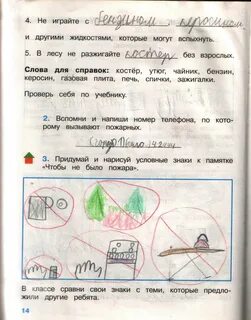 4. Не играйте с бензином и керосином
и другими жидкостями, которые могут вспыхнуть.
5. В лесу не разжигайте костёр без взрослых.
Слова для справок: костёр, утюг, чайник, бензин,
керосин, газовая плита, печь, спички, зажигалки.
Проверь себя по учебнику.
2. Вспомни и напиши номер телефона, по ко-
торому вызывают пожарных.
3. Придумай и нарисуй условные знаки к памятке
«Чтобы не было пожара».
В классе сравни свои знаки с теми, которые предло-
жили другие ребята.
14